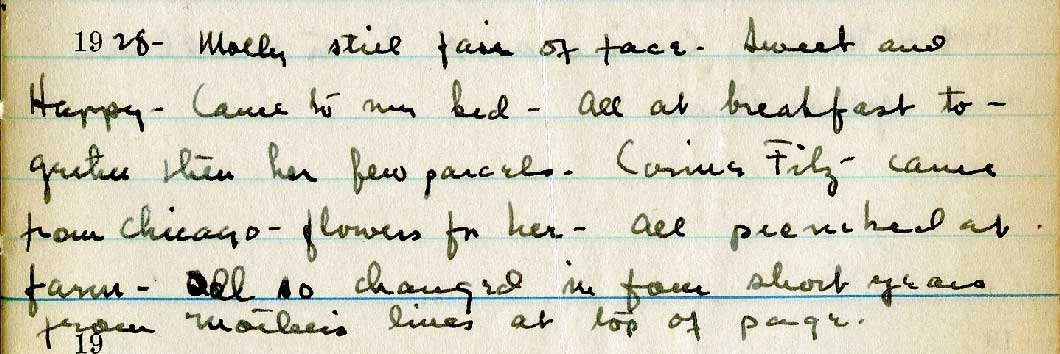 1928- Molly still fair of face. Sweet and
Happy- Came to my bed - All at breakfast to-
gether then her few parcels. Corinne Fitz- came
from Chicago - flowers for her - All picnicked at
farm - All so changed in four short years
from Mother's lines at top of page.
19